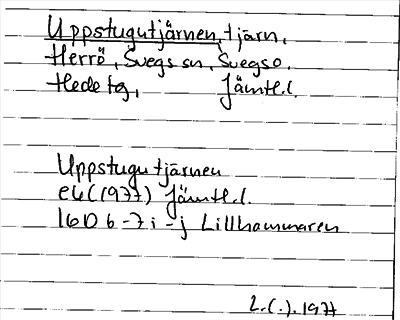 Uppstugutjärnen, tjärn,
Herrö, Svegs sn, Svegs o.
Hede tg, Jämtl.l.
Uppstugutjärnen
ek(1977) Jämtl.l.
16D 6-7 i-j Lillhammaren
L.(.).1977